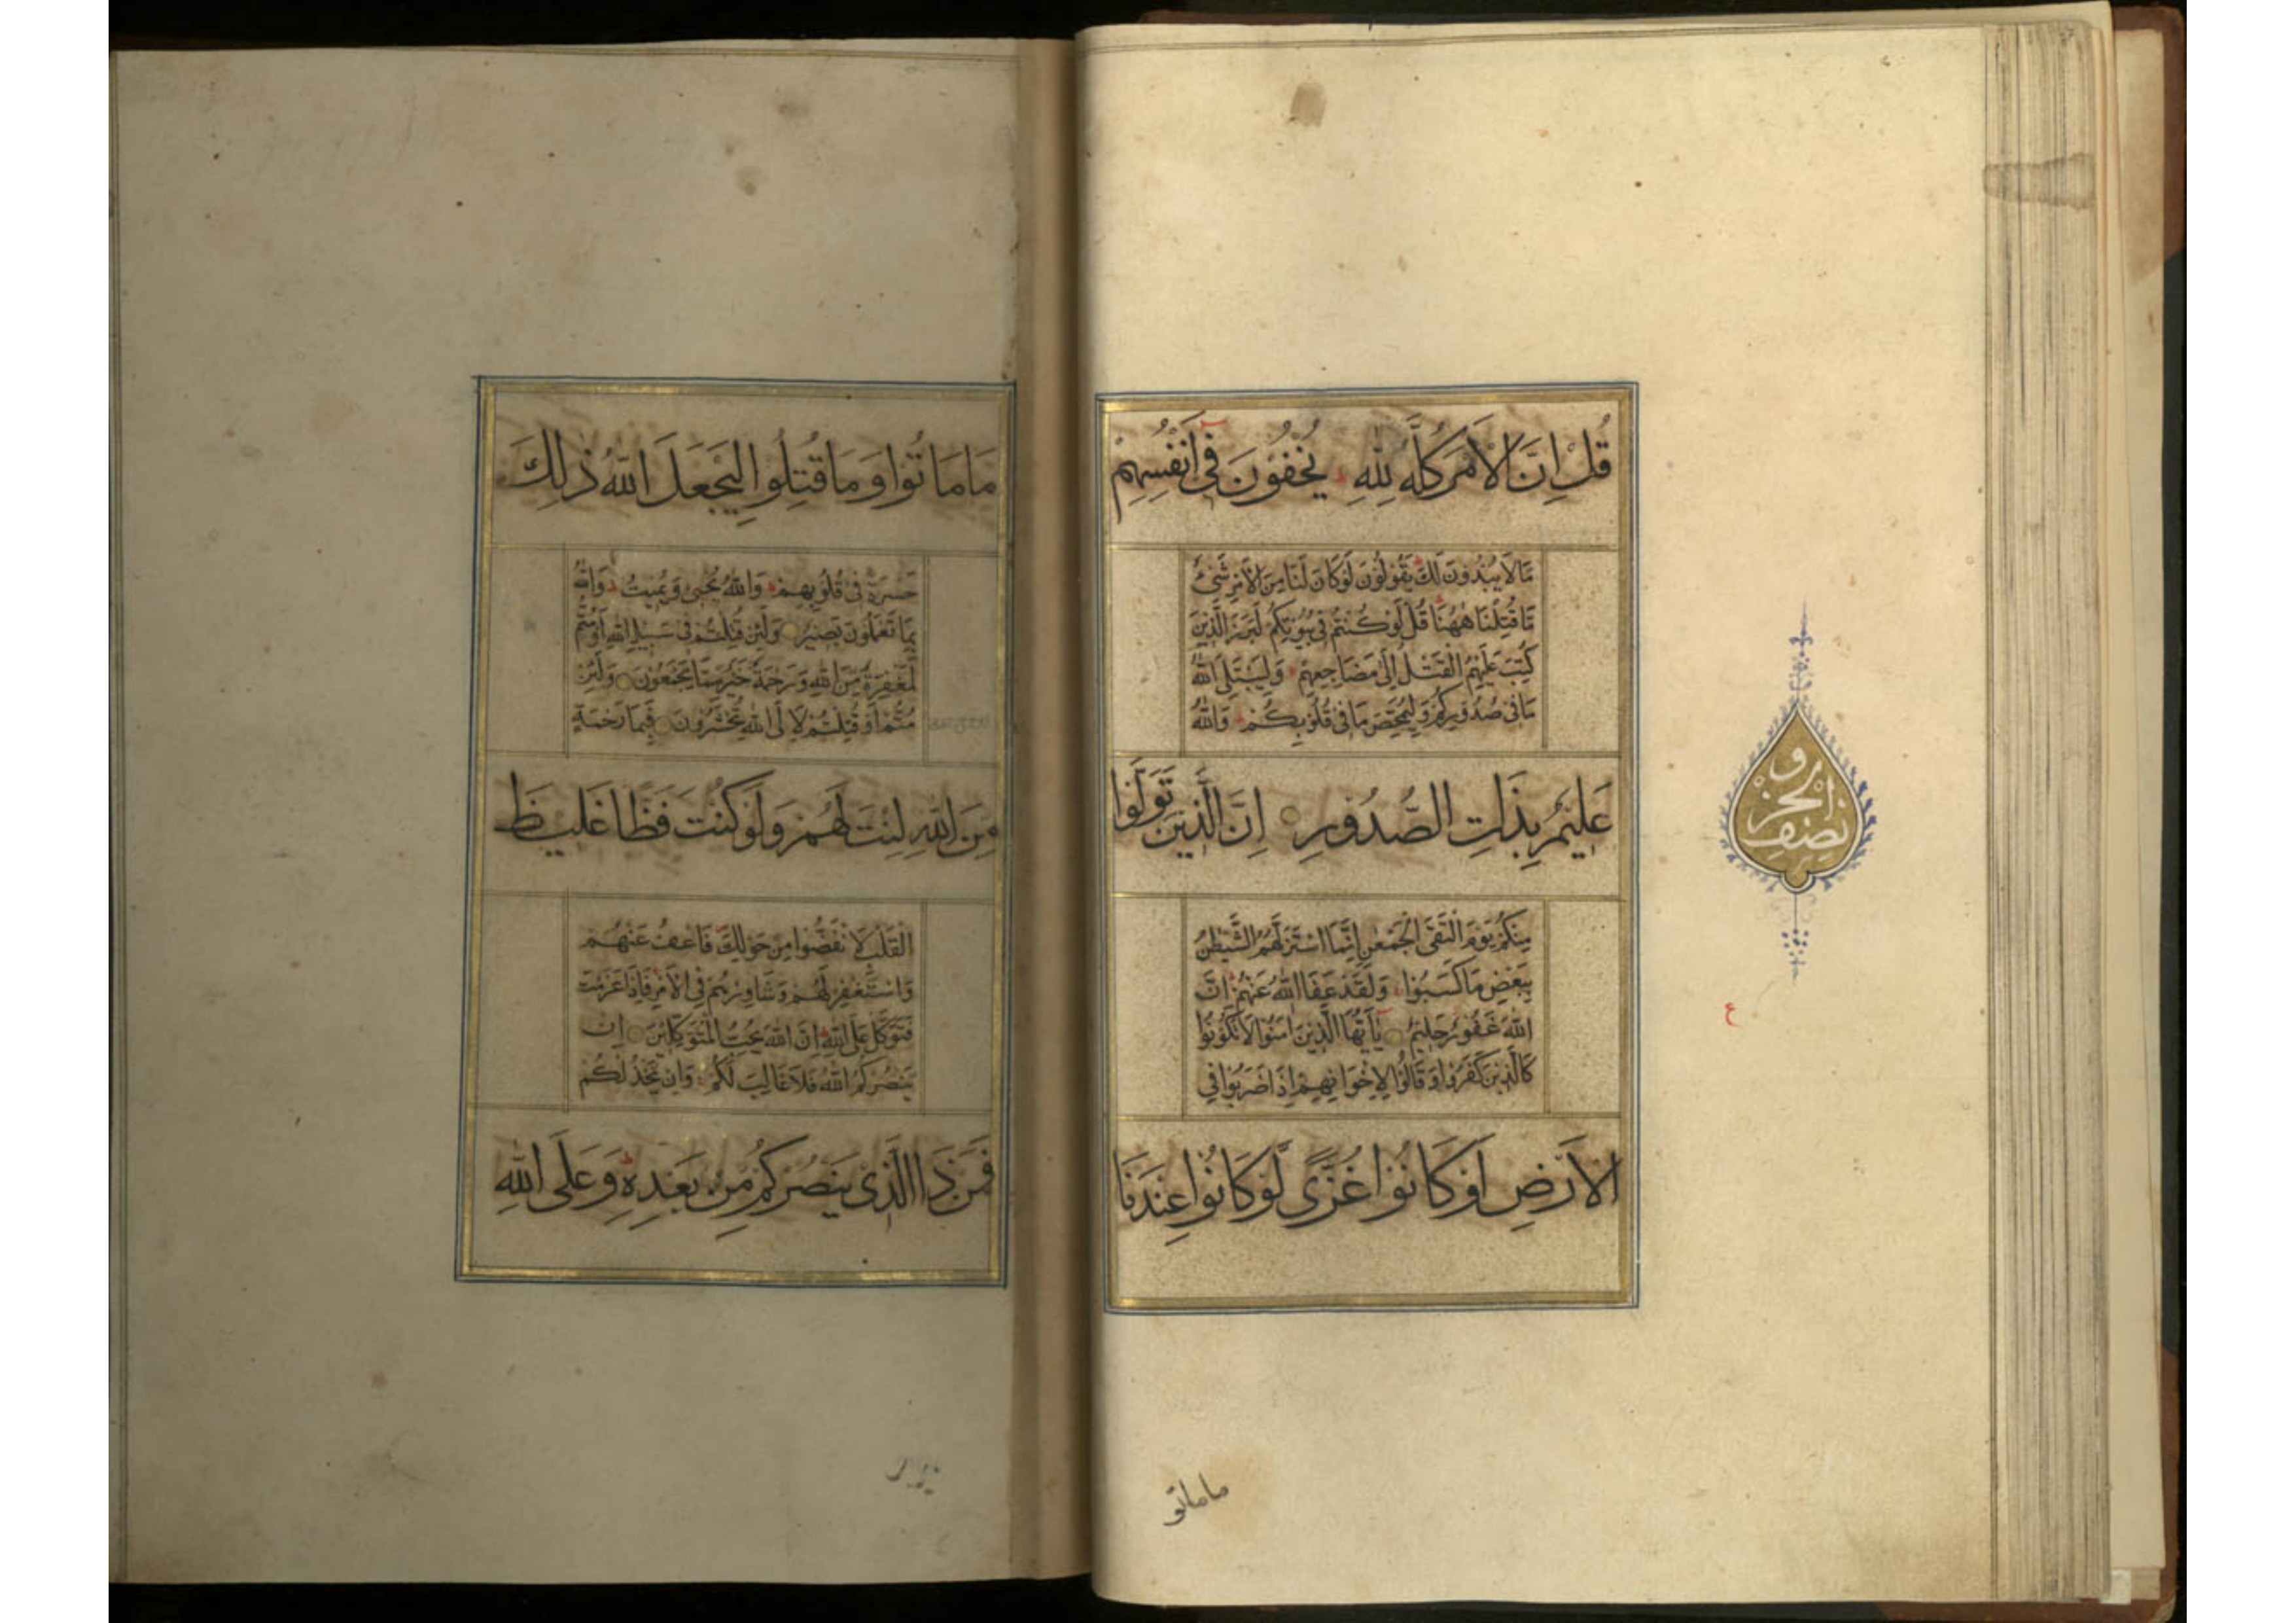 قُلْ اِنَّ الْاَمْرَ كُلَّهُ لِلّٰهِ يُخْفُونَ فِى اَنْفُسِهِمْ
مَا لَا يُبْدُونَ لَكَ يَقُولُونَ لَوْ كَانَ لَنَا مِنَ الْاَمْرِ شَىْءٌ
مَّا قُتِلْنَا هٰهُنَا قُلْ لَوْ كُنْتُمْ فِى بُيُوتِكُمْ لَبَرَزَ الَّذِينَ
كُتِبَ عَلَيْهِمُ الْقَتْلُ اِلٰى مَضَاجِعِهِمْ وَلِيَبْتَلِىَ اللّٰهُ
مَا فِى صُدُورِكُمْ وَلِيُمَحِّصَ مَا فِى قُلُوبِكُمْ وَاللّٰهُ
عَلِيمٌ بِذَاتِ الصُّدُورِ اِنَّ الَّذِينَ تَوَلَّوْا
مِنْكُمْ يَوْمَ الْتَقَى الْجَمْعٰنِ اِنَّمَا اسْتَزَلَّهُمُ الشَّيْطٰنُ
بِبَعْضِ مَا كَسَبُوا وَلَقَدْ عَفَا اللّٰهُ عَنْهُمْ اِنَّ
اللّٰهَ غَفُورٌ حَلِيمٌ يٰاَيُّهَا الَّذِينَ اٰمَنُوا لَا تَكُونُوا
كَالَّذِينَ كَفَرُوا وَقَالُوا لِاِخْوَانِهِمْ اِذَا ضَرَبُوا فِى
الْاَرْضِ اَوْ كَانُوا غُزًّى لَّوْ كَانُوا عِنْدَنَا
ماماتو
نصف الحزب
ع
مَا مَاتُوا وَمَا قُتِلُوا لِيَجْعَلَ اللّٰهُ ذٰلِكَ
حَسْرَةً فِى قُلُوبِهِمْ وَاللّٰهُ يُحْيِى وَيُمِيتُ وَاللّٰهُ
بِمَا تَعْمَلُونَ بَصِيرٌ وَلَئِنْ قُتِلْتُمْ فِى سَبِيلِ اللّٰهِ اَوْ مُتُّمْ
لَمَغْفِرَةٌ مِّنَ اللّٰهِ وَرَحْمَةٌ خَيْرٌ مِمَّا يَجْمَعُونَ وَلَئِنْ
مُتُّمْ اَوْ قُتِلْتُمْ لَاِلَى اللّٰهِ تُحْشَرُونَ فَبِمَا رَحْمَةٍ
مِنَ اللّٰهِ لِنْتَ لَهُمْ وَلَوْ كُنْتَ فَظًّا غَلِيظَ
الْقَلْبِ لَانْفَضُّوا مِنْ حَوْلِكَ فَاعْفُ عَنْهُمْ
وَاسْتَغْفِرْ لَهُمْ وَشَاوِرْهُمْ فِى الْاَمْرِ فَاِذَا عَزَمْتَ
فَتَوَكَّلْ عَلَى اللّٰهِ اِنَّ اللّٰهَ يُحِبُّ الْمُتَوَكِّلِينَ اِنْ
يَنْصُرْكُمُ اللّٰهُ فَلَا غَالِبَ لَكُمْ وَاِنْ يَخْذُلْكُمْ
فَمَنْ ذَا الَّذِى يَنْصُرُكُمْ مِنْ بَعْدِهِ وَعَلَى اللّٰهِ